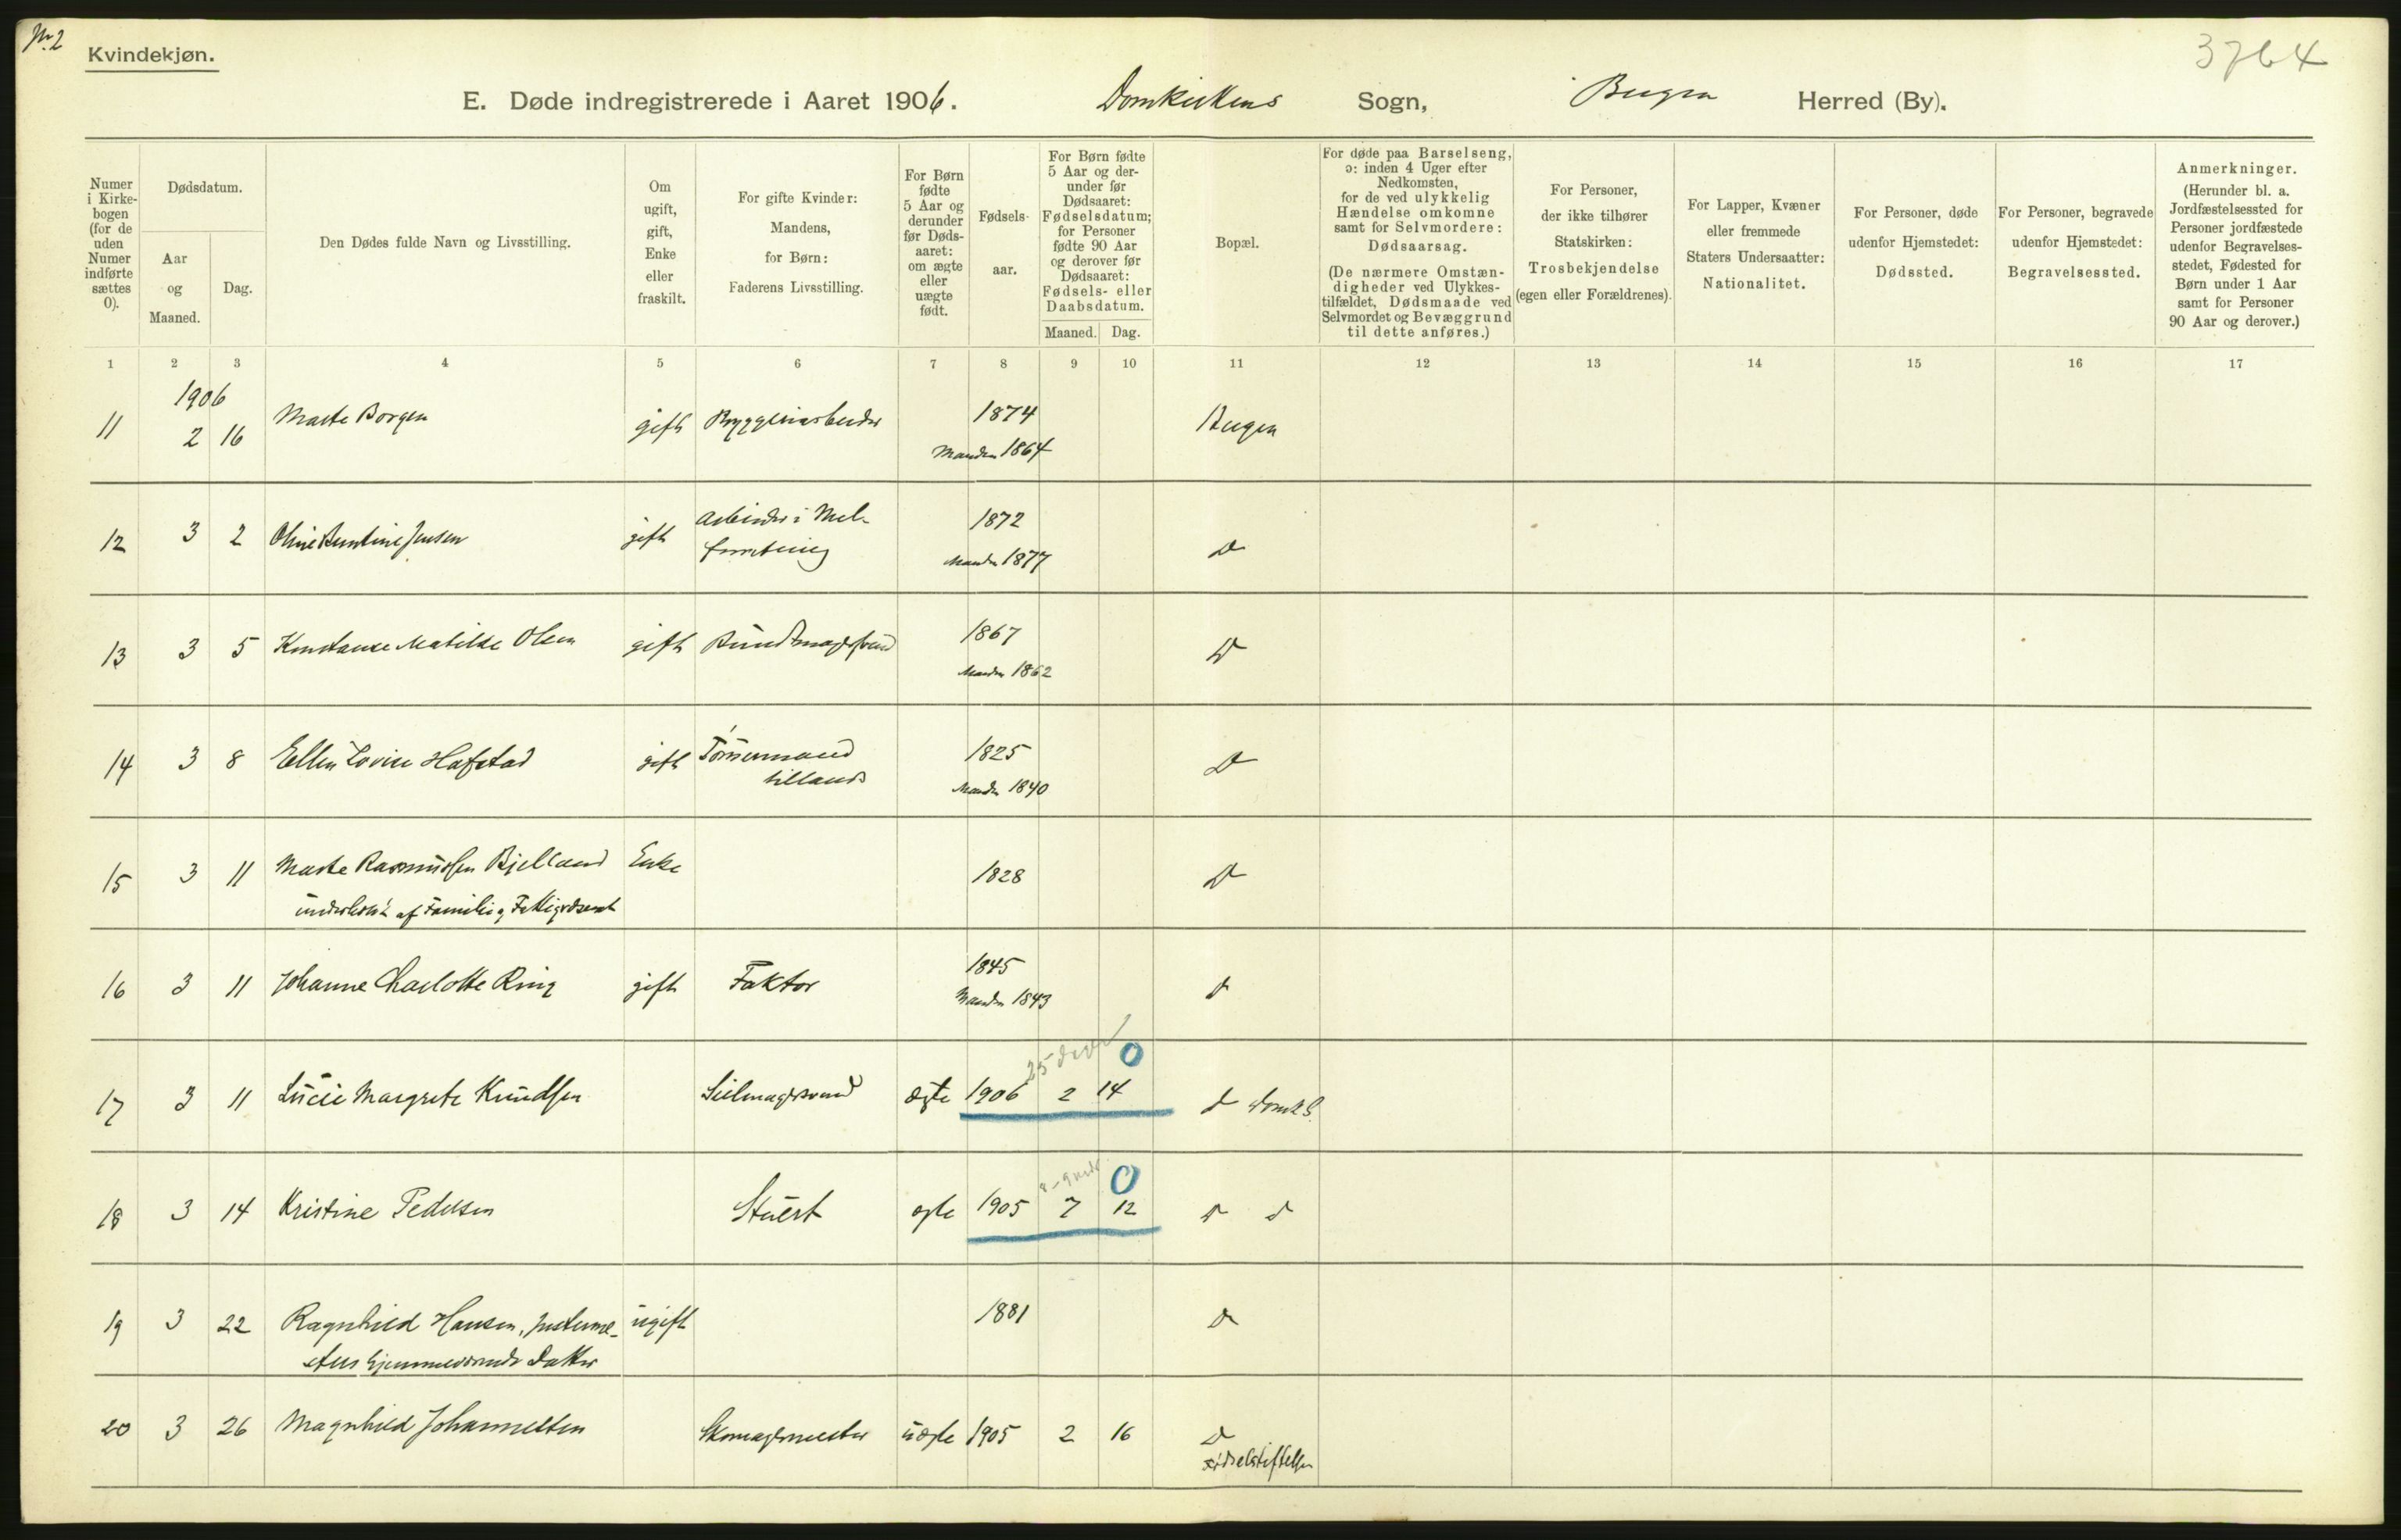 No. 2
Kvindekjøn.
3764
E. Døde indregistrerede i Aaret 1906. Domkirkens Sogn, Bergen Herred (By).
Numer i Kirke-bogen (for de uden Numer indførte sættes 0).
Dødsdatum.
Aar og Maaned.
Dag.
Den Dødes fulde Navn og Livsstilling.
Om ugift, gift, Enke eller fraskilt.
For gifte Kvinder: Mandens, for Børn: Faderens Livsstilling.
For Børn fødte 5 Aar og derunder før Døds-aaret: om ægte eller uægte født.
Fødsels-aar.
For Børn fødte 5 Aar og der-under før Dødsaaret: Fødselsdatum; for Personer fødte 90 Aar og derover før Dødsaaret: Fødsels- eller Daabsdatum.
Maaned. Dag.
Bopæl.
For døde paa Barselseng, ɔ: inden 4 Uger efter Nedkomsten, for de ved ulykkelig Hændelse omkomne samt for Selvmordere: Dødsaarsag.
(De nærmere Omstæn-digheder ved Ulykkes-tilfældet, Dødsmaade ved Selvmordet og Bevæggrund til dette anføres.)
For Personer, der ikke tilhører Statskirken: Trosbekjendelse (egen eller Forældrenes).
For Lapper, Kvæner eller fremmede Staters Undersaatter: Nationalitet.
For Personer, døde udenfor Hjemstedet: Dødssted.
For Personer, begravede udenfor Hjemstedet: Begravelsessted.
Anmerkninger. (Herunder bl. a. Jordfæstelsessted for Personer jordfæstede udenfor Begravelses-stedet, Fødested for Børn under 1 Aar samt for Personer 90 Aar og derover.)
1 2 3 4 5 6 7 8 9 10 11 12 13 14 15 16 17
1906
11 2 16 Marte Borgen gift Bryggeriarbeider 1874 Bergen
Manden 1864
12 3 2 Oline Jensen gift Arbeider i Mel- 1872 D
forretning Manden 1877
13 3 5 Konstanse Matilde Olsen gift Buntmagersvend 1867 D
Manden 1862
14 3 8 Ellen Lovise Hafstad gift Tømmermand 1825 D
tillands Manden 1840
15 3 11 Marte Rasmussen Bjelland Enke 1828 D
underholdt af Familie og Fattigvæsenet
16 3 11 Johanne Charlotte Ring gift Faktor 1845 D
Manden 1843
25 dage 0
17 3 11 Lucie Margrete Knudsen Seilmagersvend ægte 1906 2 14 D Domk S.
8-9 mdr. 0
18 3 14 Kristine Pedersen Stuert ægte 1905 7 12 D d
19 3 22 Ragnhild Hansen, ugift 1881 D
hjemmeværende Datter
20 3 26 Magnhild Johannessen Skomagermester uægte 1905 2 16 D
Fødselsstiftelsen